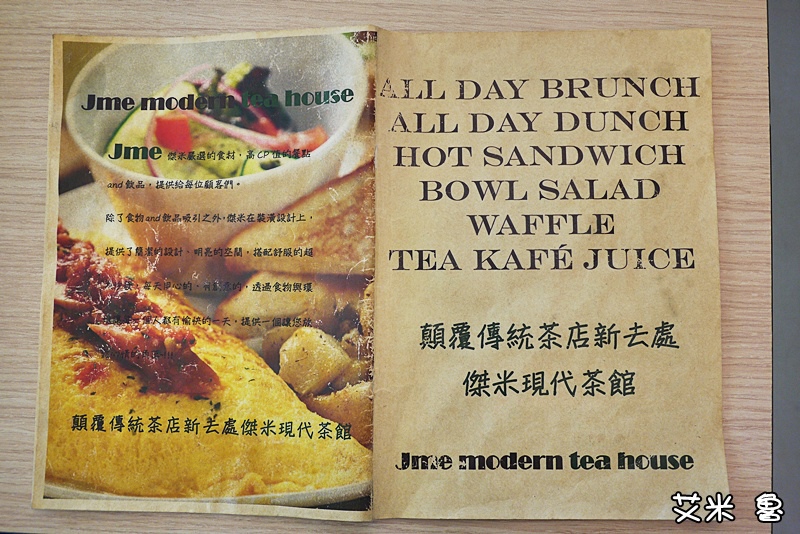 Jme modern tea house
Jme 傑米嚴選的食材，高CP值的餐點
and飲品，提供給每位顧客們。
除了食物and飲品吸引之外，傑米在裝潢設計上，
提供了簡潔的設計。明亮的空間，搭配舒服的超
每天開心的。透過食物與環
人都有愉快的一天，提供一個讓您放
顛覆傳統茶店新去處傑米現代茶館
ALL DAY BRUNCH
ALL DAY DUNCH
HOT SANDWICH
BOWL SALAD
WAFFLE
TEA KAFÉ JUICE
顛覆傳統茶店新去處
傑米現代茶館
Jme modern tea house
艾米 魯